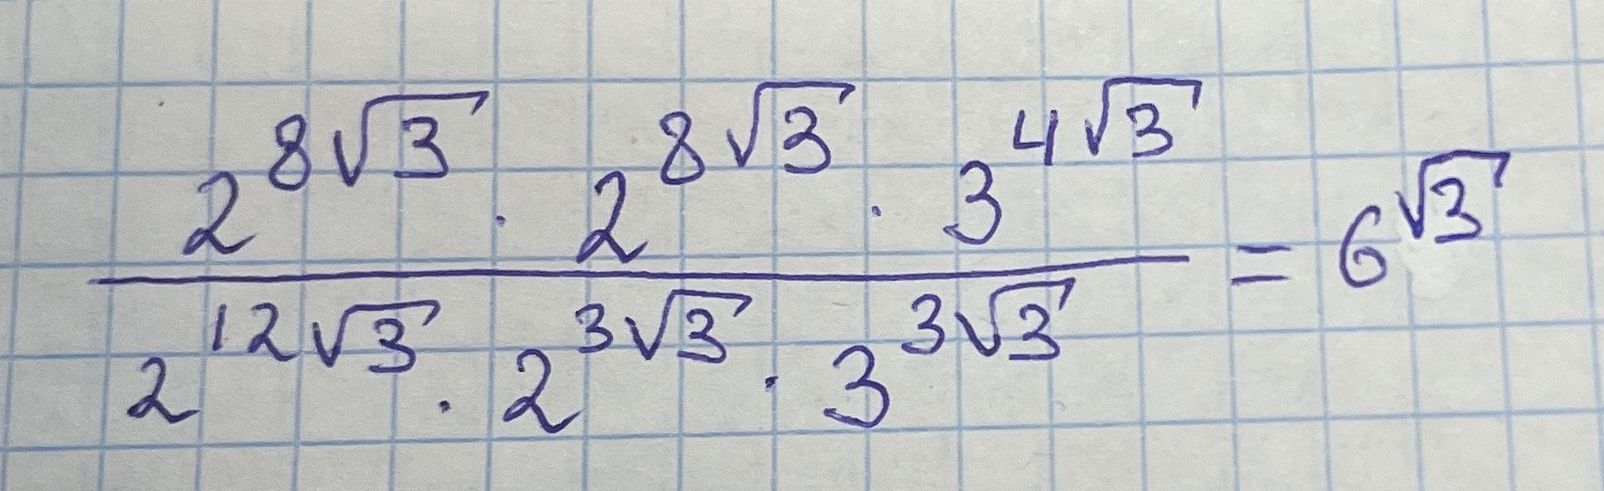 \frac{2^{8\sqrt{3}} \cdot 2^{8\sqrt{3}} \cdot 3^{4\sqrt{3}}}{2^{12\sqrt{3}} \cdot 2^{3\sqrt{3}} \cdot 3^{3\sqrt{3}}} = 6^{\sqrt{3}}